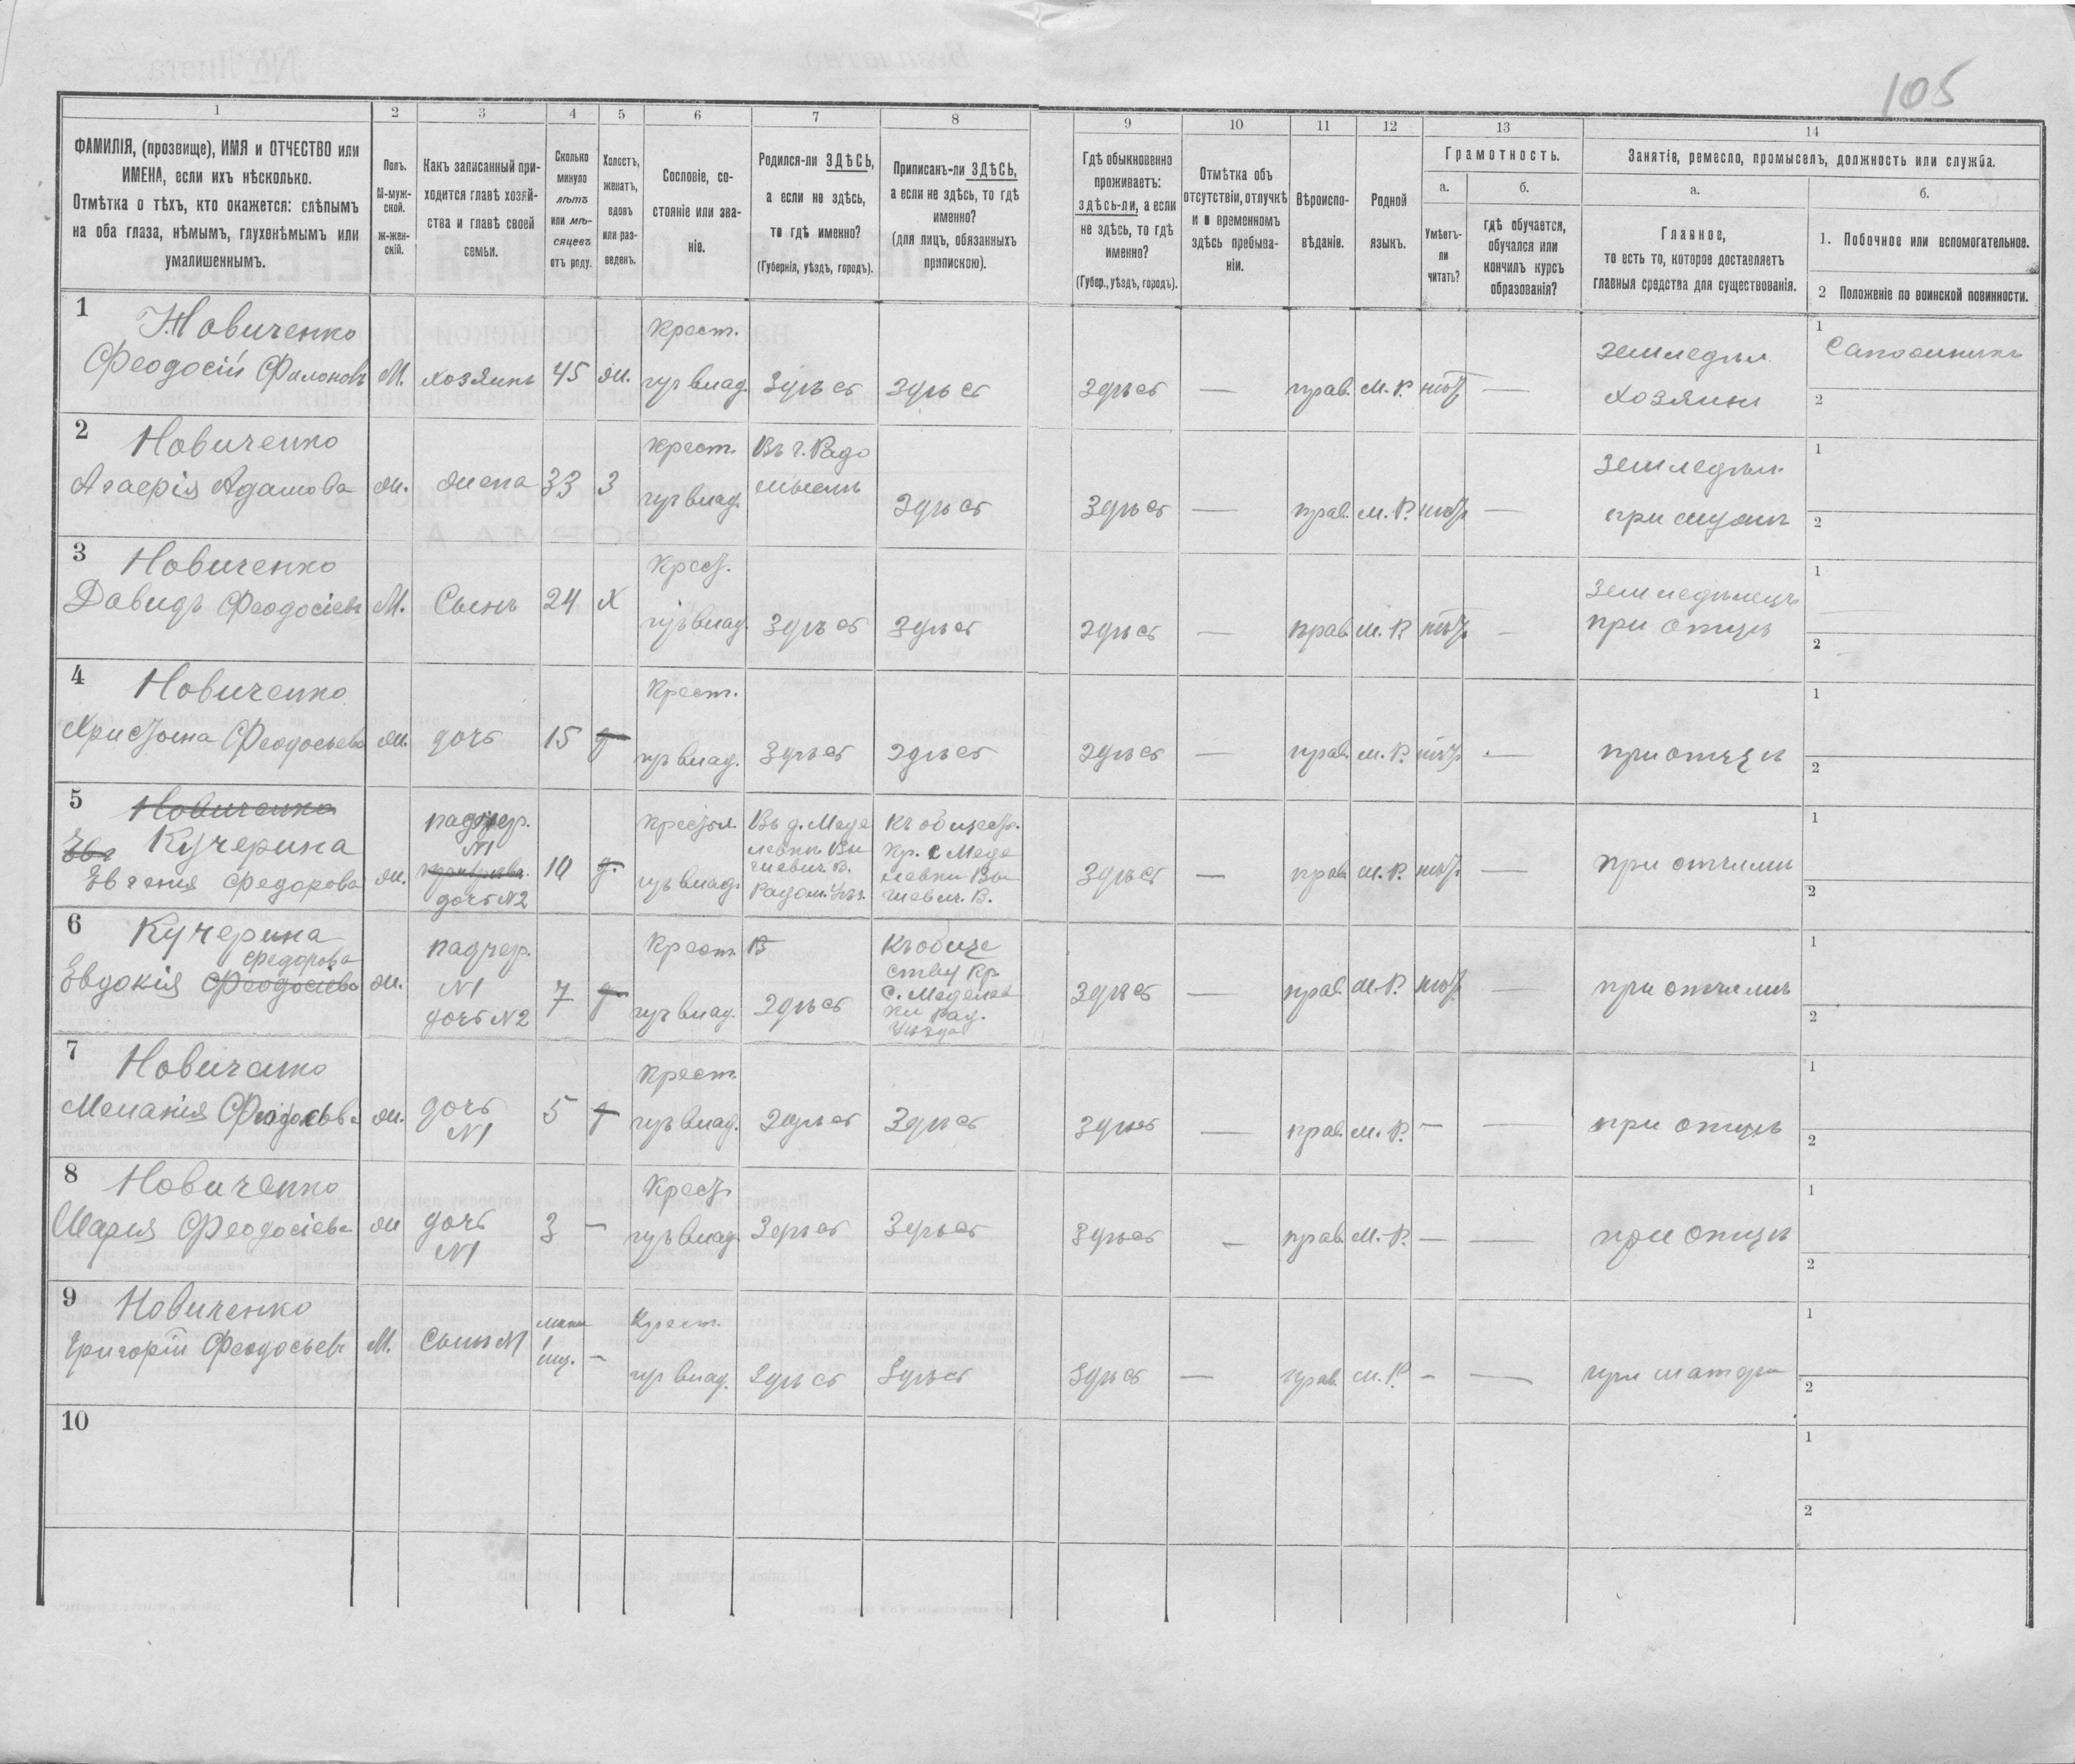 105
1 2 3 4 5 6 7 8 9 10 11 12 13 14
ФАМИЛІЯ, (прозвище), ИМЯ и ОТЧЕСТВО или
ИМЕНА, если ихъ нѣсколько.
Отмѣтка о тѣхъ, кто окажется: слѣпымъ
на оба глаза, нѣмымъ, глухонѣмымъ или
умалишеннымъ.
Полъ.
М-муж-
ской.
ж-жен-
скій.
Какъ записанный при-
ходится главѣ хозяй-
ства и главѣ своей
семьи.
Сколько
минуло
лѣтъ
или мѣ-
сяцевъ
отъ роду.
Холостъ,
женатъ,
вдовъ
или раз-
веденъ.
Сословіе, со-
стояніе или зва-
ніе.
Родился-ли ЗДѢСЬ,
а если не здѣсь,
то гдѣ именно?
(Губернія, уѣздъ, городъ).
Приписанъ-ли ЗДѢСЬ,
а если не здѣсь, то гдѣ
именно?
(для лицъ, обязанныхъ
припискою).
Гдѣ обыкновенно
проживаетъ:
здѣсь-ли, а если
не здѣсь, то гдѣ
именно?
(Губер., уѣздъ, городъ).
Отмѣтка объ
отсутствіи, отлучкѣ
и о временномъ
здѣсь пребыва-
ніи.
Вѣроиспо-
вѣданіе.
Родной
языкъ.
Грамотность.
а.
Умѣетъ-
ли
читать?
б.
гдѣ обучается,
обучался или
кончилъ курсъ
образованія?
Занятіе, ремесло, промыселъ, должность или служба.
а.
Главное,
то есть то, которое доставляетъ
главныя средства для существованія.
б.
1. Побочное или вспомогательное.
2 Положеніе по воинской повинности.
1 Новиченко
Феодосій Филоновъ
М. хозяинъ 45 ж.
Крест.
гуъ влад.
Здѣсь Здѣсь Здѣсь — прав. М. Р. нѣтъ —
земледѣл.
хозяинъ
1 Сапожникъ
2
2 Новиченко
Агафія Адамова
ж. жена 33 З
Крест.
влад.
Въ г. Радо
мыслѣ
Здѣсь Здѣсь — прав. М. Р. нѣтъ —
Земледѣл.
при мужѣ
1
2
3 Новиченко
Давидъ Феодосіевъ
М. Сынъ 24 Х
Крест.
влад.
Здѣсь Здѣсь Здѣсь — прав. М. Р. нѣтъ —
Земледѣлецъ
при отцѣ
1
2
4 Новиченко
Христина Феодосьева
ж. дочь 15 д
Крест.
влад.
Здѣсь Здѣсь Здѣсь — прав. М. Р. нѣтъ —
при отцѣ
1
2
5 Новиченко
Евг Кучерина
Евгенія Федорова
ж.
падчер.
N1
дочь N2
10 д.
Крестья
влад.
Въ д. Меде
левкѣ Вы
шевич. В.
Радом. Уѣз.
Къ общест.
Кр. с Меде
левки Вы
шевич. В.
Здѣсь — прав. М. Р. нѣтъ —
при отчимѣ
1
2
6 Кучерина
Федорова
Евдокія Феодосіева
ж.
падчер.
N1
дочь N2
7 д
Крест.
влад.
В
Здѣсь
Къ обще
ству Кр.
с. Меделев
ки Рад.
Уѣзда
Здѣсь — прав. М. Р. нѣтъ —
при отчимѣ
1
2
7 Новиченко
Меланія Феодосьева
ж.
дочь
N1
5 д
Крест.
влад.
Здѣсь Здѣсь Здѣсь — прав. М. Р. — —
при отцѣ
1
2
8 Новиченко
Марія Феодосіева
ж
дочь
N1
3 —
Крест.
влад.
Здѣсь Здѣсь Здѣсь — прав. М. Р. — —
при отцѣ
1
2
9 Новиченко
Григорій Феодосьевъ
М. Сынъ N1
1
мѣс.
—
Крест.
влад.
Здѣсь Здѣсь Здѣсь — прав. М. Р. — —
при матери
1
2
10
1
2